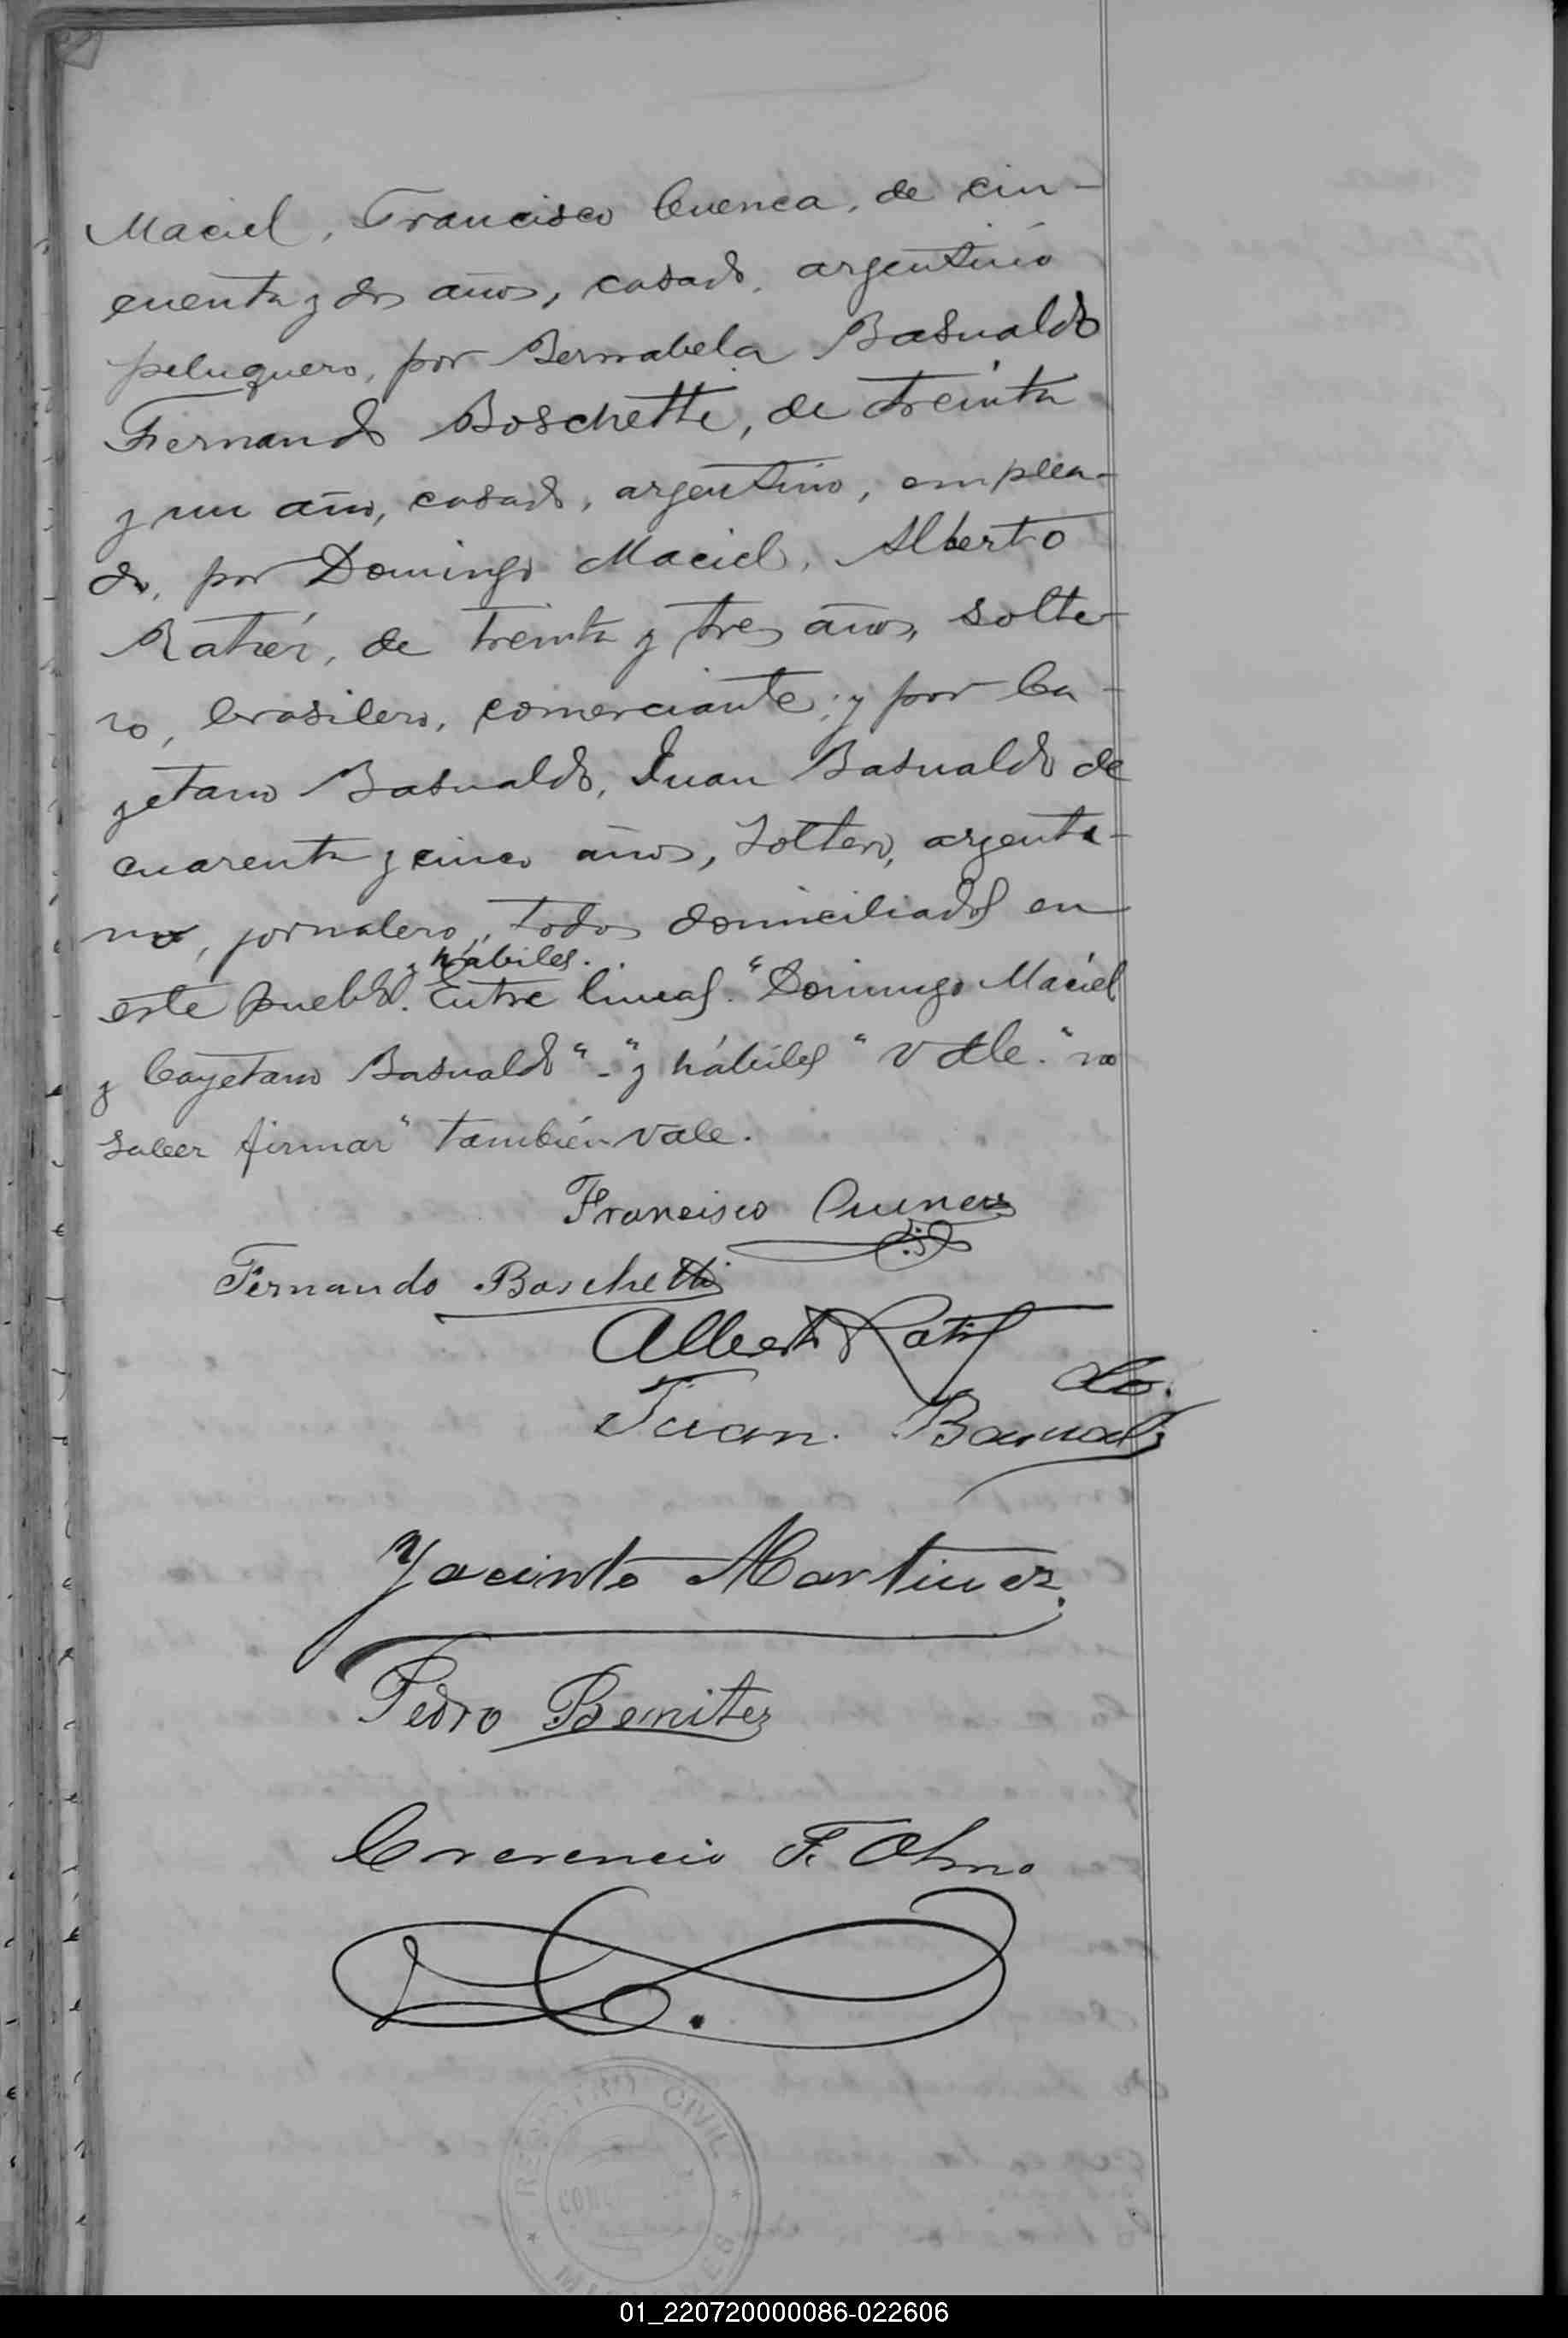 Maciel, Francisco Cuenca, de cin-
cuenta y dos años, casado, argentino
peluquero, por Bernabela Basualdo
Fernando Boschetti, de treinta
y un año, casado, argentino, emplea-
do, por Domingo Maciel, Alberto
Ratier, de treinta y tres años, solte-
ro, brasilero, comerciante; y por Ca-
yetano Basualdo, Juan Basualdo de
cuarenta y cinco años, soltero, argenti-
no, jornalero, todos domiciliados en
y hábiles.
este pueblo. Entre lineas. "Domingo Maciel
y Cayetano Basualdo" - "y hábiles" Vale. "no
saber firmar" también vale.
Francisco Cuenca
Fernando Boschetti
Alberto Ratier
do.
Juan. Basual
Jacinto Martinez.
Pedro Benitez
Crecencio F. Olmo
REGISTRO CIVIL
MISIONES
01_220720000086-022606